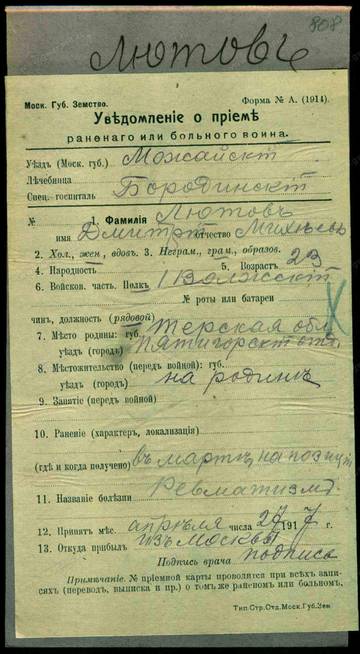 808
Лютовъ
Моск. Губ. Земство. Форма № А. (1914).
Увѣдомленіе о пріемѣ
раненаго или больного воина.
Уѣздъ (Моск. губ.) Можайскій
Лѣчебница
Спец. госпиталь Бородинскій
№ 1. Фамилія Лютовъ
имя Дмитрій отчество
2. Хол., жен., вдовъ. 3. Неграм., грам., образов.
4. Народность 5. Возрастъ 23
6. Войсков. часть. Полкъ 1 Волжскій
№ роты или батареи
чинъ, должность (рядовой)
7. Мѣсто родины: губ. Терская обл.
уѣздъ (городъ) Пятигорскій отд.
8. Мѣстожительство (передъ войной): губ.
уѣздъ (городъ) на родинѣ
9. Занятіе (передъ войной)
10. Раненіе (характеръ, локализація)
(гдѣ и когда получено) въ мартѣ на позиц
11. Названіе болѣзни Ревматизмъ
12. Принятъ мѣс. апрѣля числа 27 1917 г.
13. Откуда прибылъ изъ Москвы
Подпись врача подпись
Примѣчаніе. № пріемной карты проводится при всѣхъ запи-
сяхъ (перевод., выписка и пр.) о томъ же раненомъ или больномъ.
Тип. Стр. Отд. Моск. Губ. Зем